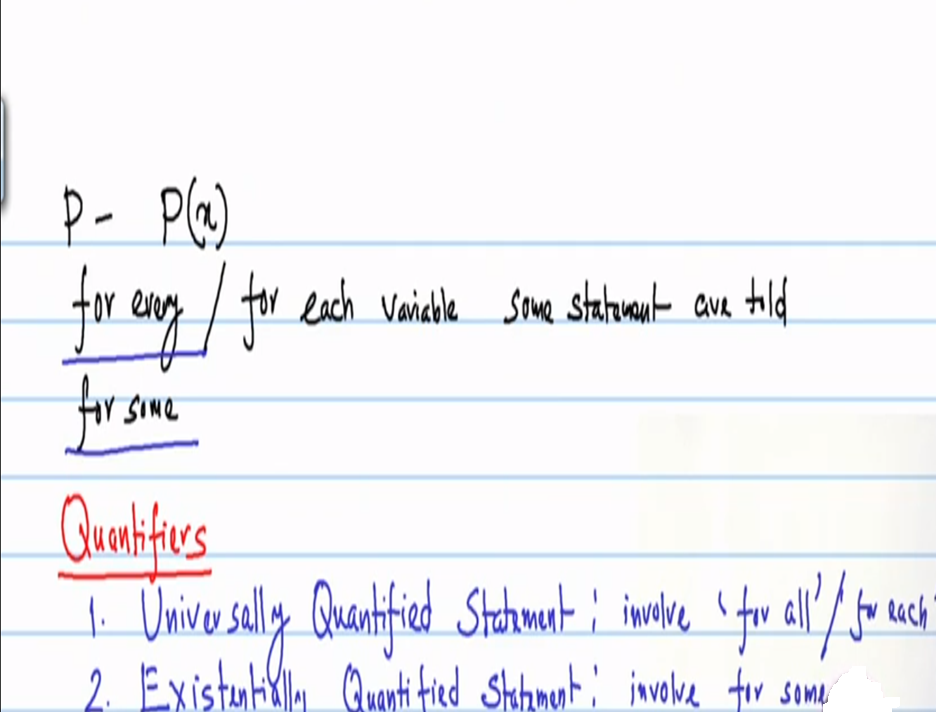 P - P(x)
for every / for each variable some statement are told
for some
Quantifiers
1. Universally Quantified Statement : involve 'for all' / for each
2. Existentially Quantified Statment : involve for some